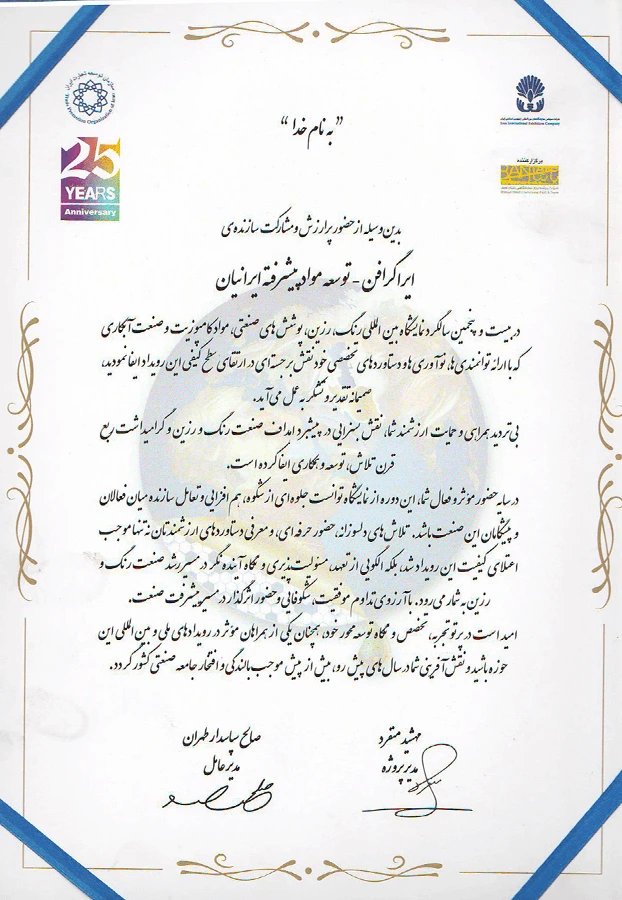 سازمان توسعه تجارت ایران
Trade Promotion Organization of Iran
25
YEARS
Anniversary
Iran International Exhibition Company
برگزارکننده
BANIAN
” به نام خدا “
بدین وسیله از حضور پرارزش و مشارکت سازنده‌ی
ایراگرافن - توسعه مواد پیشرفته ایرانیان
در بیست و پنجمین سالگرد نمایشگاه بین المللی رنگ، رزین، پوشش های صنعتی، مواد کامپوزیت و صنعت آبکاری
که با ارائه توانمندی ها، نوآوری ها و دستاوردهای تخصصی خود نقش برجسته‌ای در ارتقای سطح کیفی این رویداد ایفا نمودید،
صمیمانه تقدیر و تشکر به عمل می‌آید.
بی تردید همراهی و حمایت ارزشمند شما، نقش بسزایی در پیشبرد اهداف صنعت رنگ و رزین و گرامیداشت ربع
قرن تلاش، توسعه و همکاری ایفا کرده است.
در سایه حضور مؤثر و فعال شما، این دوره از نمایشگاه توانست جلوه‌ای از شکوه، هم افزایی و تعامل سازنده میان فعالان
و پیشگامان این صنعت باشد. تلاش های دلسوزانه، حضور حرفه‌ای، و معرفی دستاوردهای ارزشمندتان نه تنها موجب
اعتلای کیفیت این رویداد شد، بلکه الگویی از تعهد، مسئولیت پذیری و نگاه آینده نگر در مسیر رشد صنعت رنگ و
رزین به شمار می رود. با آرزوی تداوم موفقیت، شکوفایی و حضور اثرگذار در مسیر پیشرفت صنعت.
امید است در پرتو تجربه، تخصص و نگاه توسعه محور خود، همچنان یکی از همراهان مؤثر در رویدادهای ملی و بین المللی این
حوزه باشید و نقش آفرینی شما در سال های پیش رو، بیش از پیش موجب بالندگی و افتخار جامعه صنعتی کشور گردد.
مهشید منفرد
مدیر پروژه
صالح پاسدار طهران
مدیرعامل